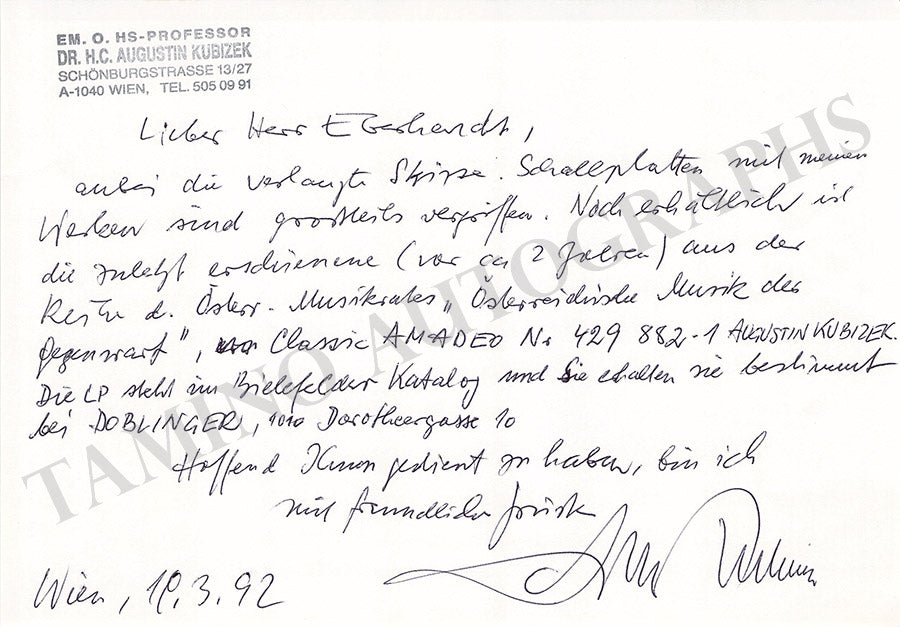 EM. O. HS-PROFESSOR
DR. H.C. AUGUSTIN KUBIZEK
SCHÖNBURGSTRASSE 13/27
A-1040 WIEN, TEL. 505 09 91
Lieber Herr Eberhardt,
anbei die verlangte Skizze. Schallplatten mit meinen
Werken sind großteils vergriffen. Noch erhältlich ist
die zuletzt erschienene (vor ca 2 Jahren) aus der
Reihe d. Österr. Musikrates „Österreichische Musik der
Gegenwart", Classic AMADEO Nr. 429 882-1 AUGUSTIN KUBIZEK.
Die LP steht im Bielefelder Katalog und Sie erhalten sie bestimmt
bei DOBLINGER, 1010 Dorotheergasse 10
Hoffend Ihnen gedient zu haben, bin ich
mit freundlichen Grüßen
Wien, .3.92
TAMINO AUTOGRAPHS